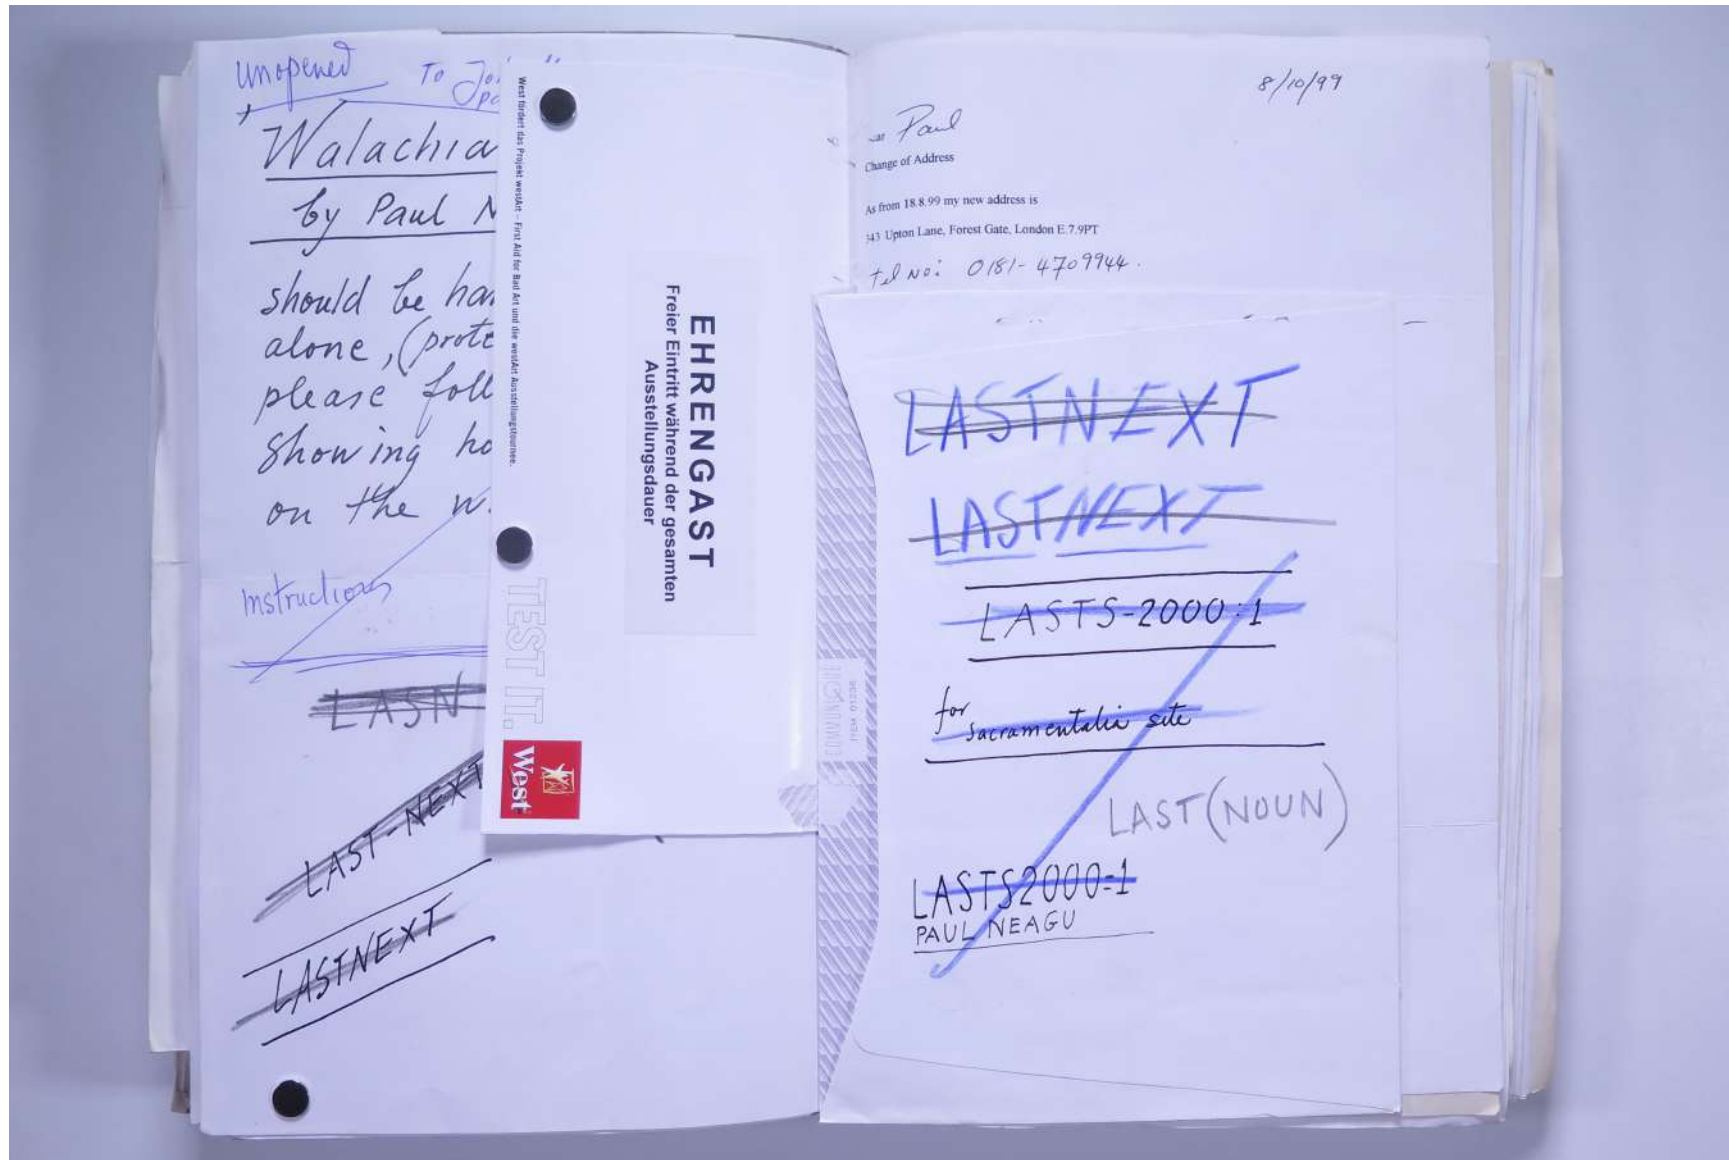 unopened
To
Walachia
by Paul
should be
alone,
please
showing
on the
Instructions
LASN
LAST-NEXT
LASTNEXT
West fördert das Projekt westArt – First Aid for Bad Art und die westArt Ausstellungstournee.
EHRENGAST
Freier Eintritt während der gesamten
Ausstellungsdauer
TEST IT.
West
8/10/99
Paul
Change of Address
As from 18.8.99 my new address is
343 Upton Lane, Forest Gate, London E.7.9PT
tel No: 0181-4709944.
LASTNEXT
LASTNEXT
LASTS-2000:1
for
Sacramentalia site
LAST (NOUN)
LASTS2000=1
PAUL NEAGU